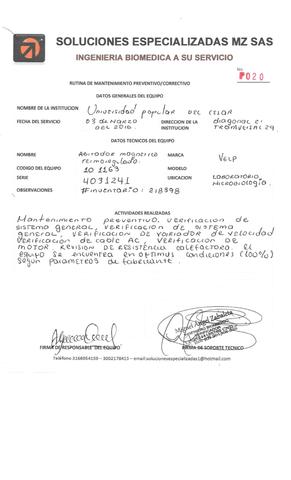 SOLUCIONES ESPECIALIZADAS MZ SAS
INGENIERIA BIOMEDICA A SU SERVICIO
No. P020
RUTINA DE MANTENIMIENTO PREVENTIVO/CORRECTIVO
DATOS GENERALES DEL EQUIPO
NOMBRE DE LA INSTITUCION Universidad popular DEL CESAR
FECHA DEL SERVICIO 03 de MARZO DEL 2016. DIRECCION DE LA INSTITUCION diagonal 21
DATOS TECNICOS DEL EQUIPO
NOMBRE Agitador magnetico MARCA VELP
CODIGO DEL EQUIPO 10 1163 MODELO
SERIE 4031241 UBICACION LABORATORIO Microbiología.
OBSERVACIONES #Finventario: 218598
ACTIVIDADES REALIZADAS
Mantenimiento preventivo, verificación de
sistema general, verificación de sistema
general, verificación de variador de velocidad
verificación de cable AC, verificación de
motor, revisión de resistencia calefactora. El
equipo se encuentra en optimas condiciones (100%)
según parametros de fabricante.
FIRMA DE RESPONSABLE DEL EQUIPO FIRMA DE SOPORTE TECNICO
Miguel Angel Zabaleta
Teléfono 3168954159 - 3002178415 - email:solucionesespecializadas1@hotmail.com